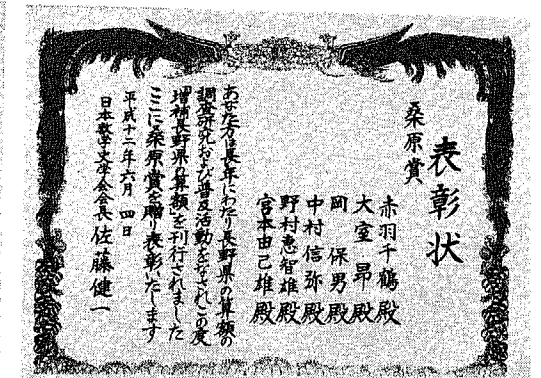 表彰状
桑原賞
赤羽千鶴殿
大室昂殿
岡保男殿
中村信弥殿
野村恵智雄殿
宮本由己雄殿
あなた方は長年にわたり長野県の算額の
調査研究および普及活動をなされこの度
増補長野県の算額を刊行されました
ここに桑原賞を贈り表彰いたします
平成十二年六月四日
日本数学史学会会長佐藤健一